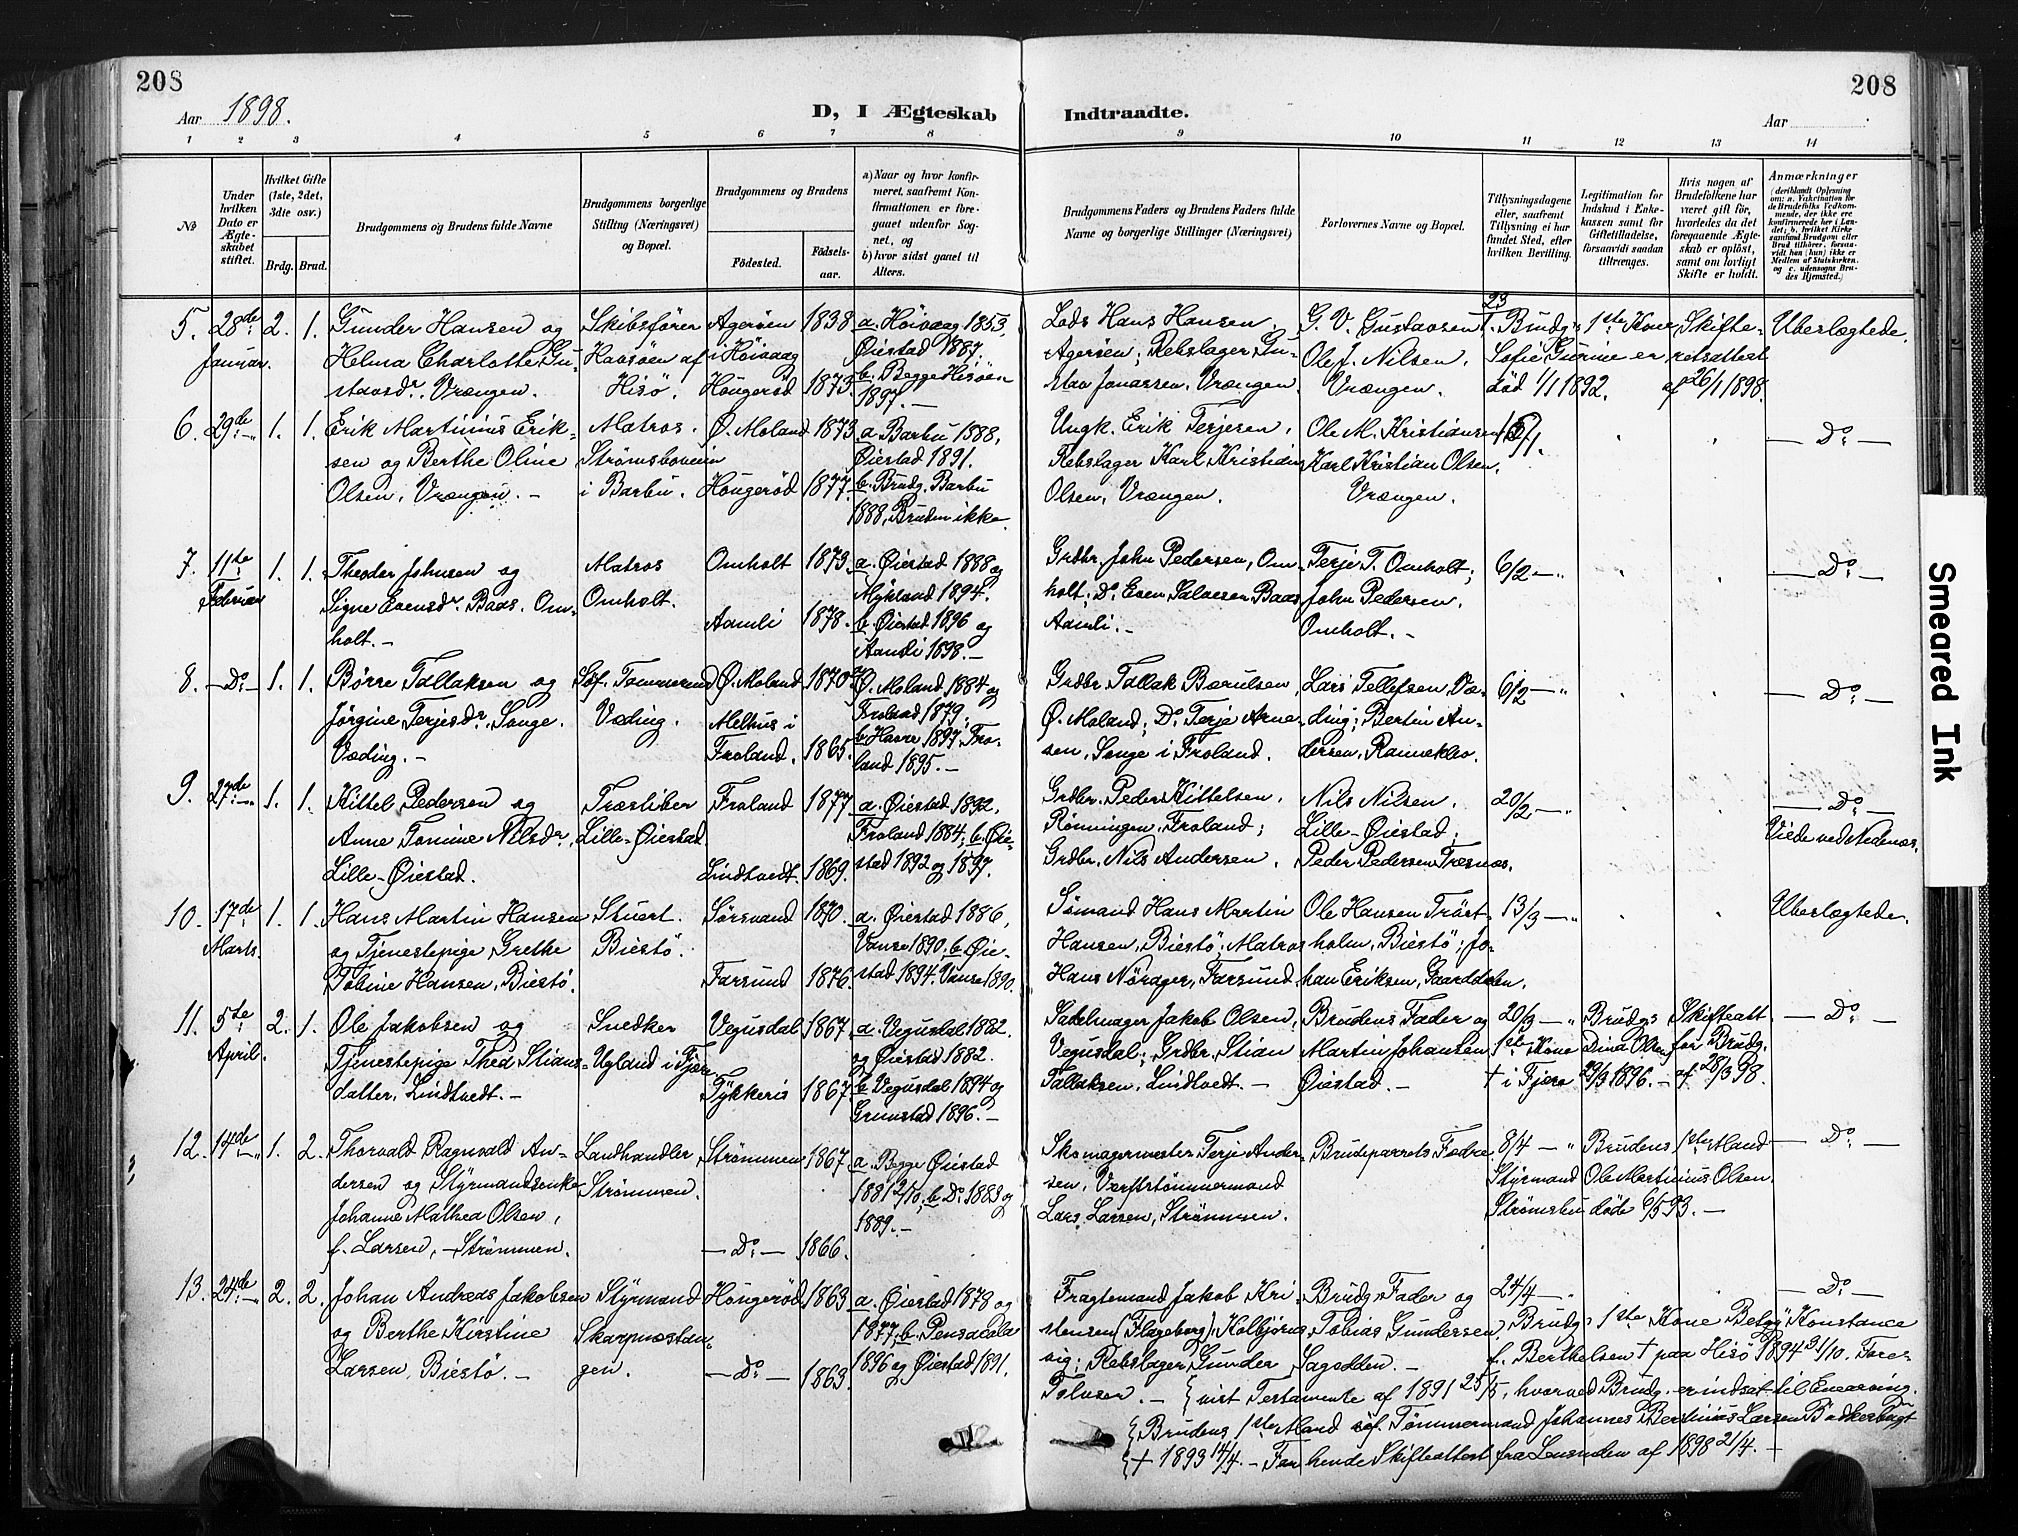 208
208
Aar 1898.
D, I Ægteskab
Indtraadte.
Aar
1 2 3 4 5 6 7 8 9 10 11 12 13 14
No
Under hvilken Dato er Ægteskabet stiftet.
Hvilket Gifte (1ste, 2det, 3die osv.)
Brdg. Brud.
Brudgommens og Brudens fulde Navne
Brudgommens borgerlige Stilling (Næringsvei) og Bopæl.
Brudgommens og Brudens
Födested.
Födselsaar.
a) Naar og hvor konfirmeret, saafremt Konfirmationen er foregaaet udenfor Sognet, og
b) hvor sidst gaaet til Alters.
Brudgommens Faders og Brudens Faders fulde Navne og borgerlige Stillinger (Næringsvei)
Forlovernes Navne og Bopæl.
Tillysningsdagene eller, saafremt Tillysning ei har fundet Sted, efter hvilken Bevilling.
Legitimation for Indskud i Enkekassen samt for Giftetilladelse, forsaavidt saadan tiltrænges.
Hvis nogen af Brudefolkene har været gift för, hvorledes da det foregaaende Ægteskab er oplöst, samt om lovligt Skifte er holdt.
Anmærkninger
5. 28de Januar. 2. 1.
Gunder Hansen og
Helma Charlotte Gu-
stavsdr. Vrængen.
Skibsfører
Havsøen af
Hisø.
Agerøen 1838
i Høivaag
Hougerød 1873.
a. Høivaag 1853,
Øiestad 1887.
b. Begge Hisøen
1897. —
Lods Hans Hansen
Agerøen; Rebslager Gu-
stav Jonassen, Vrængen.
G. V. Gustavsen,
Olef. Nilsen,
Vrængen.
23/1. Brudgs 1ste Kone
Sofie Gurine er
død 1/1 1892.
Skifte-
retsattest
af 26/1 1898.
Uberlægtede.
6. 29de 1. 1.
Erik Martinius Erik-
sen og Berthe Oline
Olsen, Vrængen. —
Matros.
Strømsboveien
i Barbu.
Ø. Moland 1873
Hougerød 1877.
a. Barbu 1888,
Øiestad 1891.
b. Brudg. Barbu
1888, Bruden ikke.
Ungk. Erik Terjesen,
Rebslager Karl Kristian
Olsen, Vrængen.
Ole M. Kristiansen
Karl Kristian Olsen,
Vrængen.
— Do —
7. 11te Februar 1. 1.
Theodor Johnsen og
Signe Evensdr. Baas. Om-
holt. —
Matros
Omholt.
Omholt 1873.
Aamli 1878.
a. Øiestad 1888 og
Mykland 1894.
b. Øiestad 1896 og
Aamli 1898. —
Grdbr. John Pedersen, Om-
holt; Do. Even Salvesen Baas
Aamli. —
Terje T. Omholt;
John Pedersen,
Omholt. —
6/2 — "
— Do —
8. — Do — 1. 1.
Børre Tallaksen og
Jørgine Terjesdr. Songe.
Væding. —
Søf. Tømmermd
Væding.
Ø. Moland 1870
Melhus i
Froland. 1865.
Ø. Moland 1884 og
Froland 1879;
b. Havre 1897, Fro-
land 1895. —
Grdbr Tallak Bærulsen,
Ø. Moland; Do Terje Arne-
sen, Songe i Froland.
Lars Tellefsen, Væ-
ding; Bertin An-
dersen, Rannekleo.
6/2 — "
— Do —
9. 27de 1. 1.
Kittel Pedersen og
Anne Tomine Nilsdr.
Lille-Øiestad.
Træsliber
Lille-Øiestad.
Froland 1877
Lindtvedt. 1869.
a. Øiestad 1892.
Froland 1884; b. Øie-
stad 1892 og 1897.
Grdbr. Peder Kittelsen,
Rønningen, Froland;
Grdbr. Nils Andersen.
Nils Nilsen,
Lille-Øiestad;
Peder Pedersen Træsnæs.
20/2 — "
— Do —
Viede ved Nedenæs.
10. 17de Marts. 1. 1.
Hans Martin Hansen
og Tjenestepige Grethe
Tobine Hansen, Biestø.
Stuert.
Biestø.
Sørsvand 1870.
Farsund 1876.
a. Øiestad 1886,
Vanse 1890. b. Øie-
stad 1894. Vanse 1890.
Sømand Hans Martin
Hansen, Biestø; Matros
Hans Nørager, Farsund.
Ole Hansen Trøst-
holm, Biestø; Jo-
han Eriksen, Gaarddalen.
13/3 — "
Uberlægtede.
11. 5te April. 2. 1.
Ole Jakobsen og
Tjenestepige Thea Stians-
datter, Lindtvedt. —
Snedker
Ugland i Fjære
Vegusdal 1867.
Tykkeris 1867.
a. Vegusdal 1882
og Øiestad 1882.
b. Vegusdal 1894 og
Grimstad 1896. —
Sadelmager Jakob Olsen,
Vegusdal; Grdbr. Stian
Tallaksen, Lindtvedt. —
Brudens Fader og
Martin Johansen
Øiestad. —
20/3 — " Brudgs
1ste Kone Dina Olsen
† i Fjære 29/3 1896. —
Skifteatt.
for Brudg.
af 28/3 98.
— Do —
12. 14de 1. 2.
Thorvald Ragnvald An-
dersen og Styrmandsenke
Johanne Mathea Olsen,
f. Larsen, — Strømmen.
Landhandler
Strømmen.
Strømmen 1867
— Do — 1866.
a. Begge Øiestad
1881 2/10; b. Do. 1883 og
1889. —
Skomagermester Terje Ander-
sen, Værftstømmermand
Lars Larsen, Strømmen.
Brudeparrets Fædre
8/4 — " Brudens 1ste Mand
Styrmand Ole Martinius Olsen,
Strømsbu døde 6/5 93. —
— Do —
13. 24de 2. 2.
Johan Andreas Jakobsen
og Berthe Kirstine
Larsen, Biestø. —
Styrmand
Skarpnæstan-
gen.
Hougerød 1863
— Do — 1863.
a. Øiestad 1878 og
1877; b. Pensacola
1896 og Øiestad 1891.
Fragtemand Jakob Kri-
stensen (Flageborg) Kolbjørns-
vig; Rebslager Gunder
Tolvsen. —
Brudg. Fader og
Tobias Gundersen,
Sagodden. —
24/4 — "
— Do —
Brudgs 1ste Kone Betzy Konstance
f. Berthelsen † paa Hisø 1894 31/10. Fore-
{vist Testamente af 1891 25/5, hvorved Brudg. er indsat til Enearving.
{Brudens 1ste Mand søf. Tømmermand Johannes Bertinius Larsen Bødkerbugt
{† 1893 14/4. — Fra hende Skifteattest fra Lensmden af 1898 21/4. —
Smeared Ink